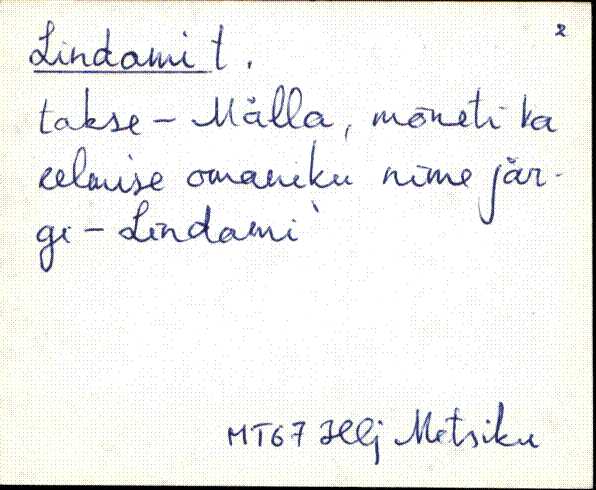 2
Lindami t.
takse – Mälla, mõneti ka
eelmise omaniku nime jär-
gi – Lindami
MT67 Hlj Metsiku